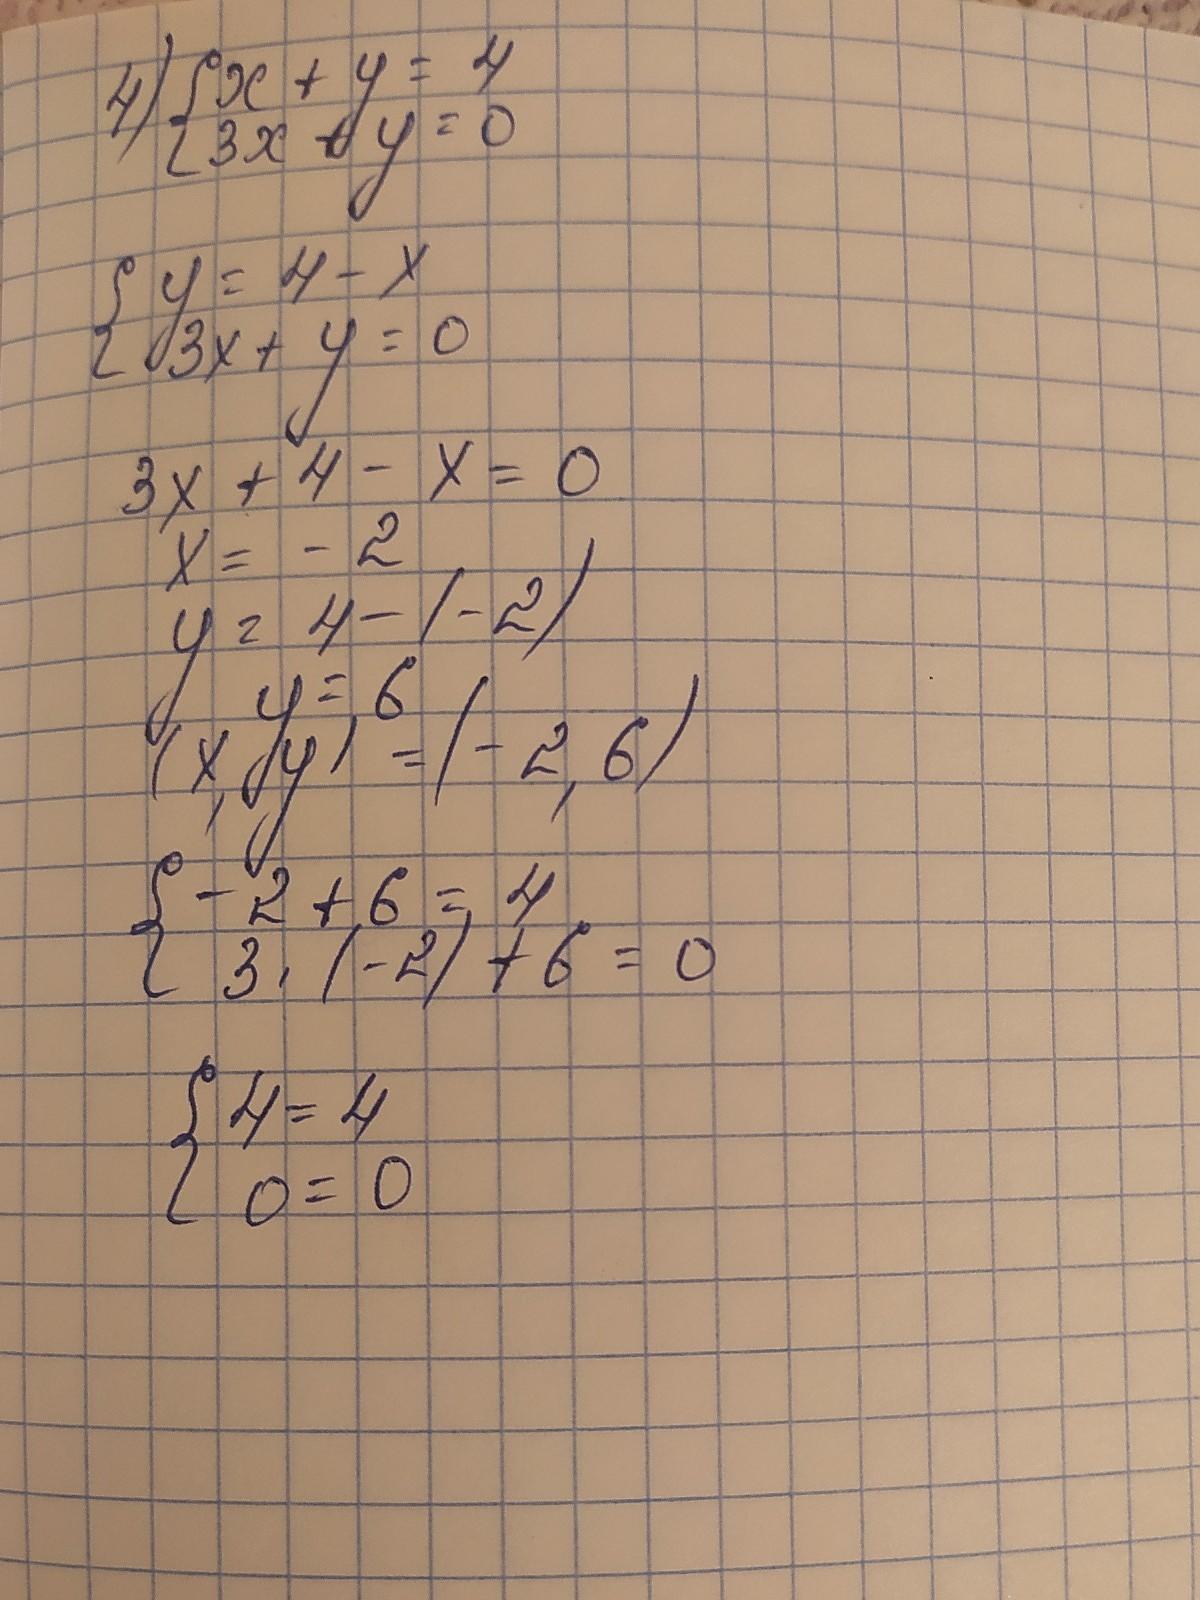 4) { x + y = 4
3x + y = 0
{ y = 4 - x
3x + y = 0
3x + 4 - x = 0
x = - 2
y = 4 - (-2)
y = 6
(x, y) = (-2, 6)
{ -2 + 6 = 4
3 · (-2) + 6 = 0
{ 4 = 4
0 = 0